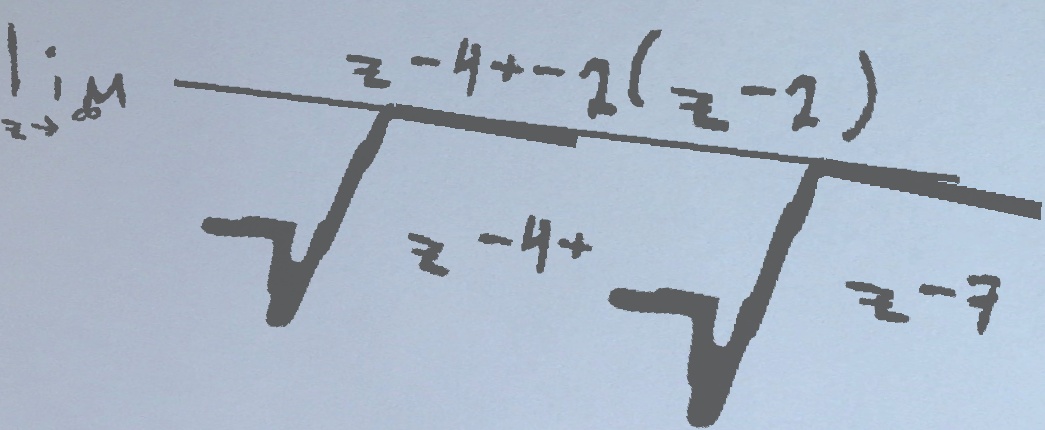 \lim_{z \to \infty} \frac{z-4+-2(z-2)}{\sqrt{z-4}+\sqrt{z-7}}